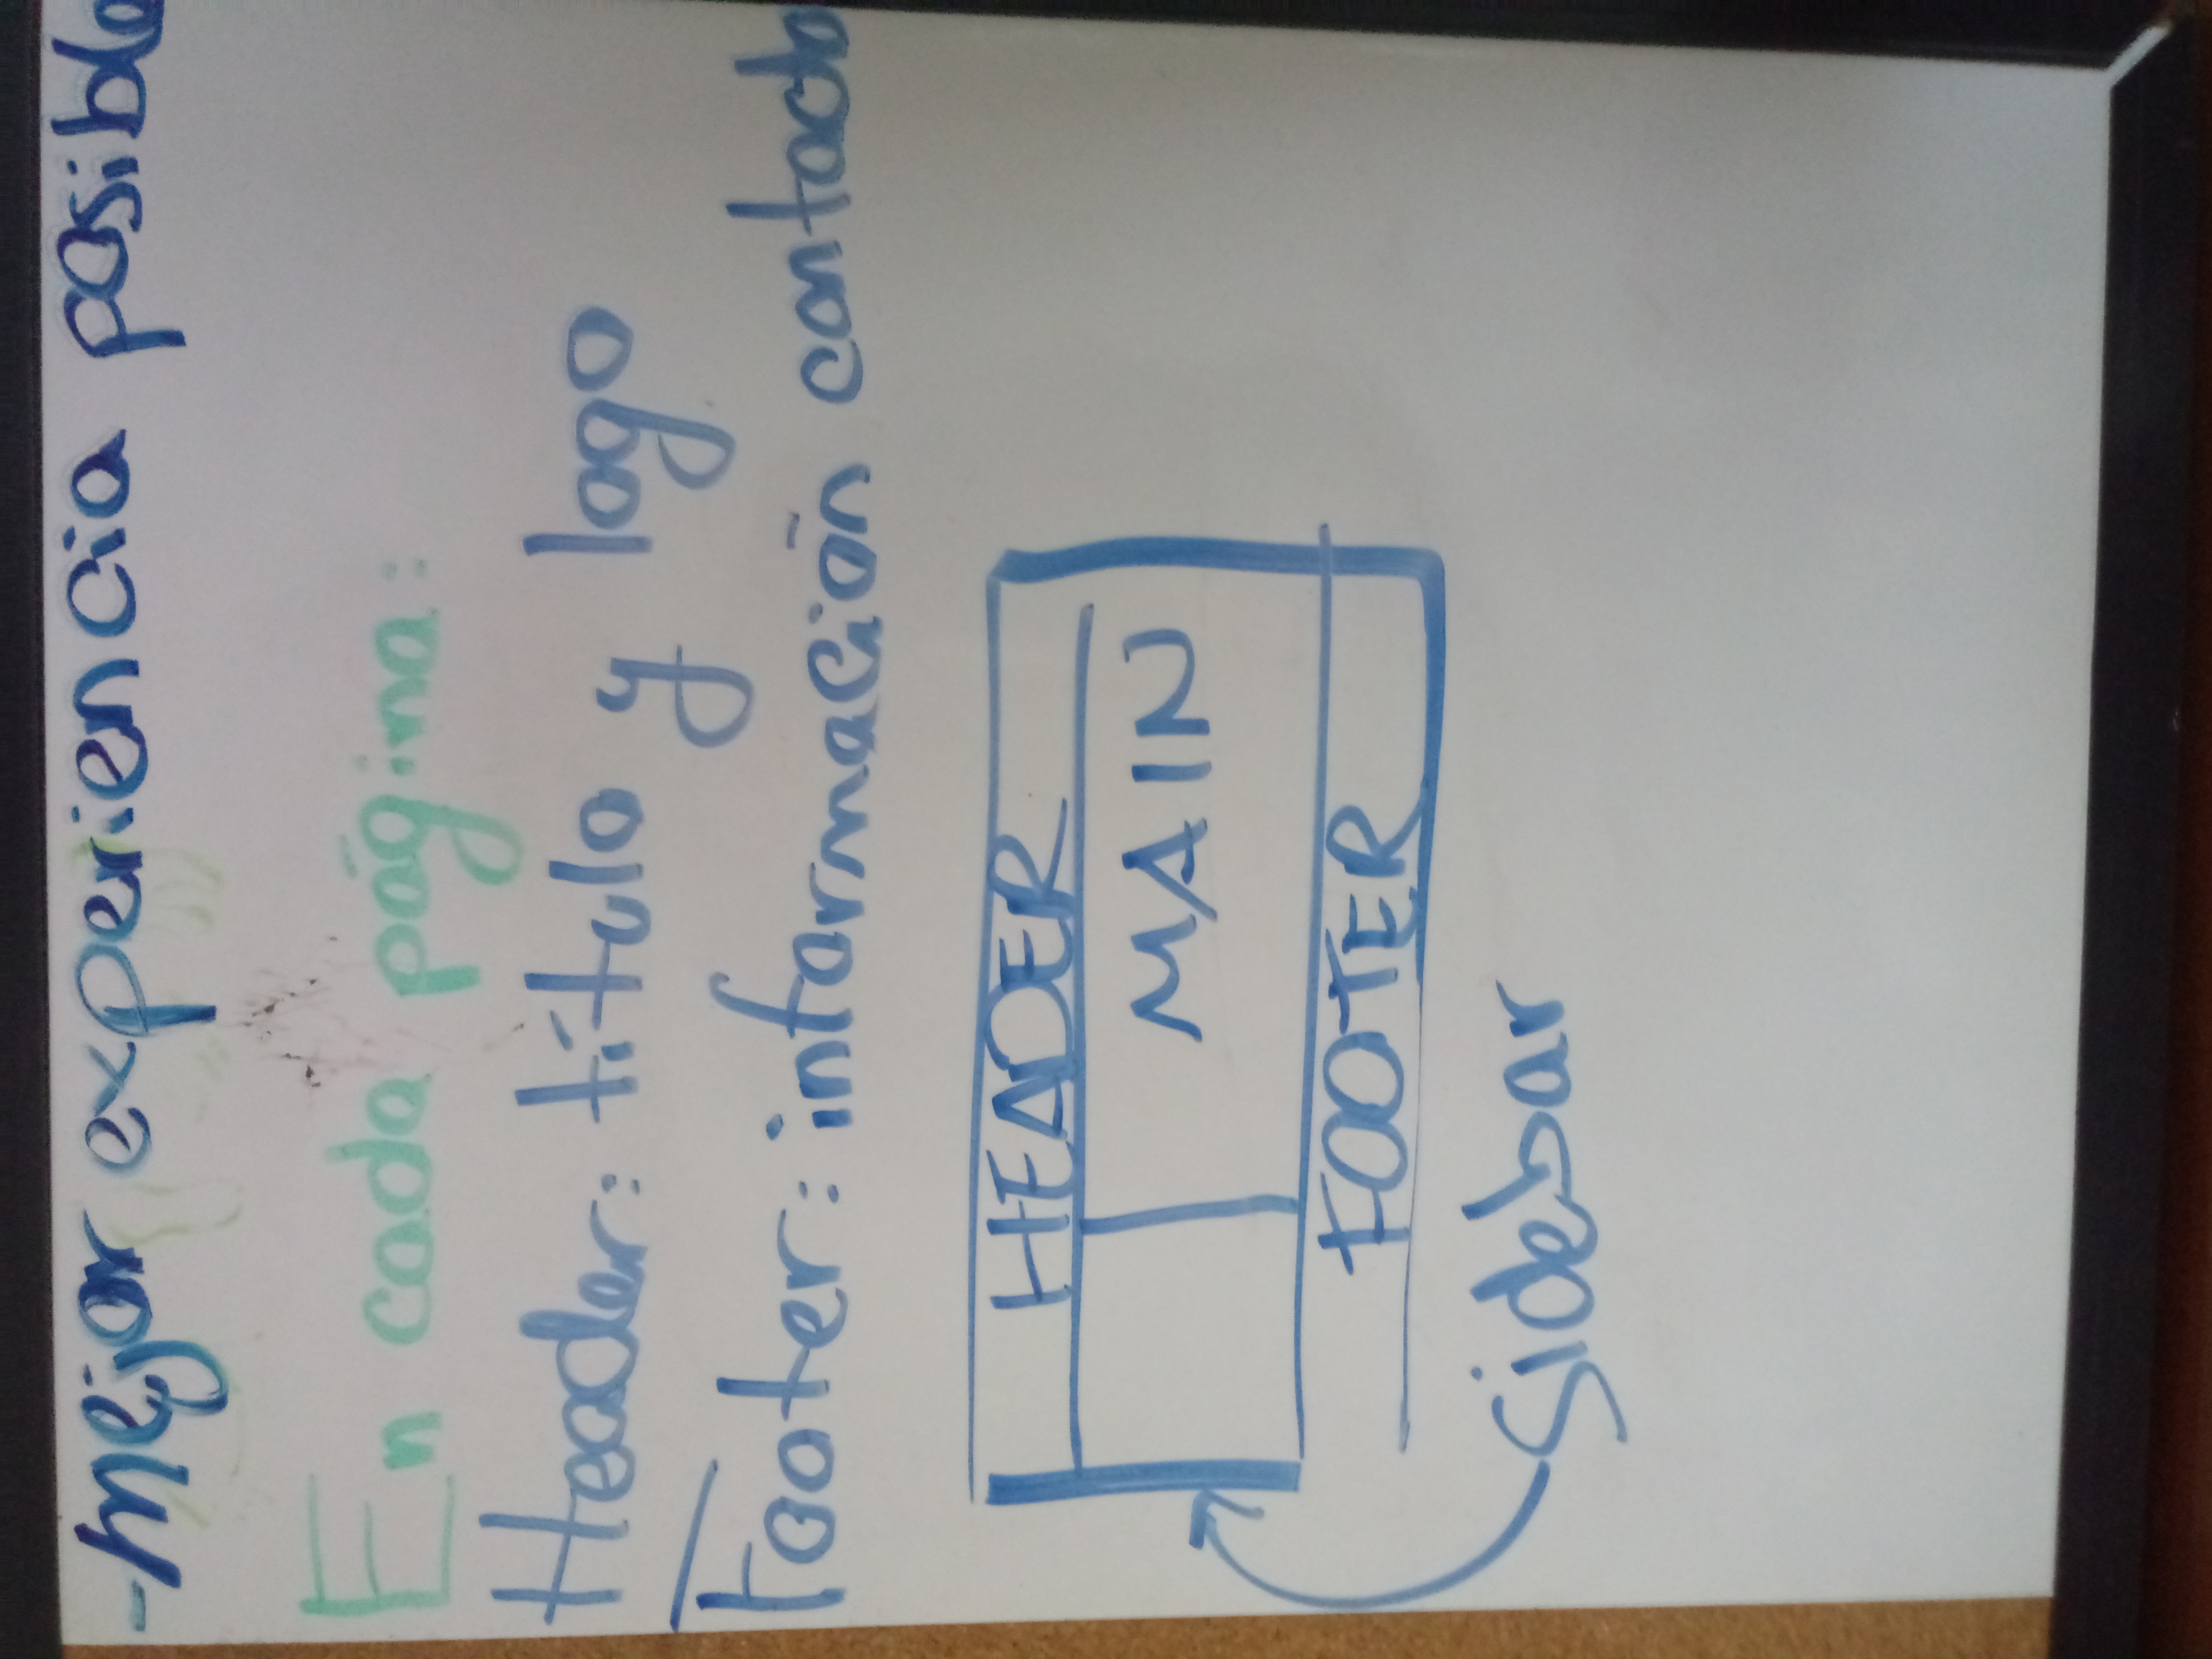 -mejor experiencia posible
En cada página:
Header: título y logo
Footer: información contacto
HEADER
MAIN
FOOTER
sidebar